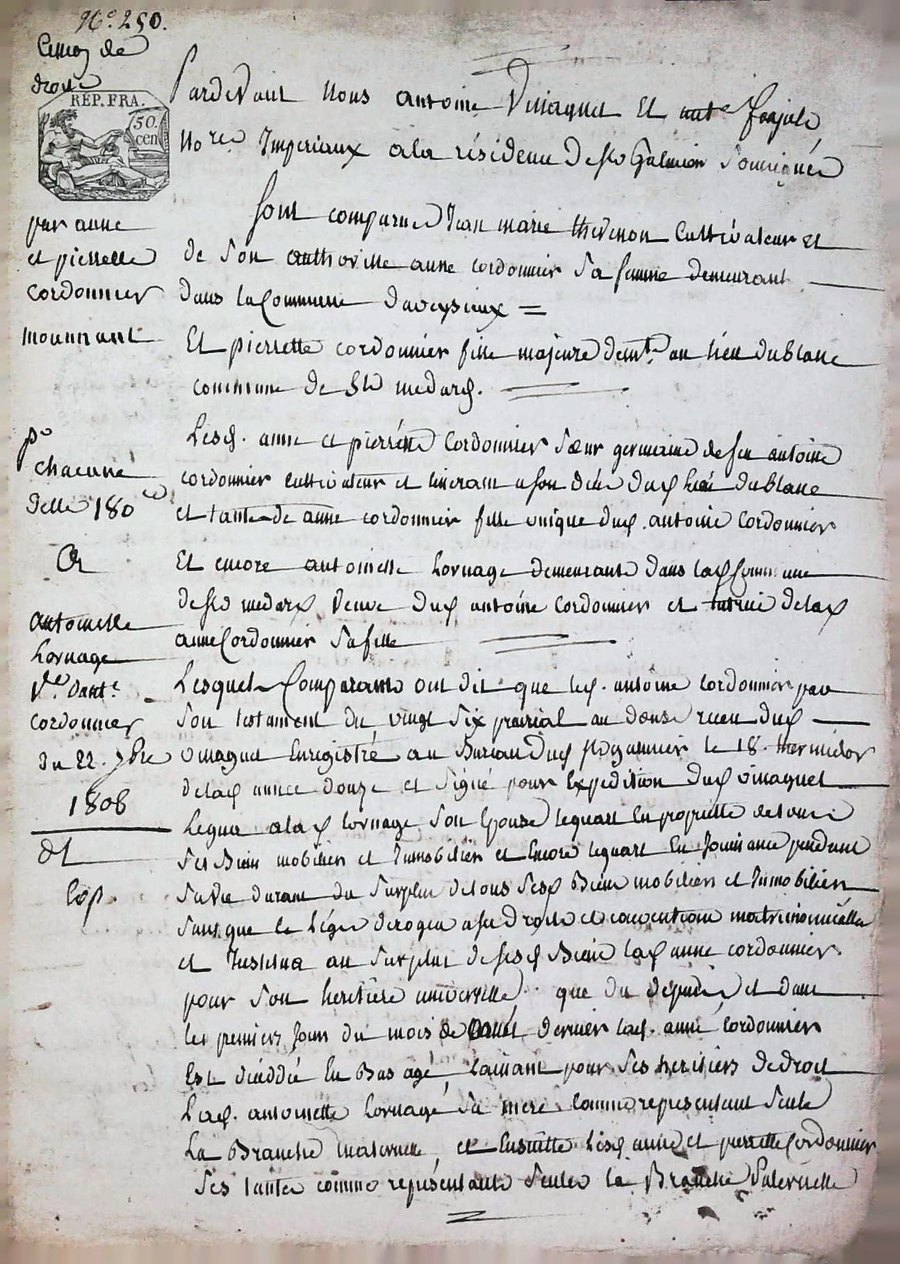 N.o 250.
Cession de
droits
REP. FRA.
50.
cen
par anne
et pierrette
cordonnier
mourant
po
chacune
delle 180
Or
antoinette
Lornage
V.e d'ant.e
cordonnier
du 22. 9bre
1808
Exp.
Pardevant Nous antoine Vinagnet Et
No.res Imperiaux ala résidence de St Galmier Soussignés
Sont comparus Jean marie thevenon Cultivateur et
de Son authorité anne cordonnier Sa femme demeurant
dans la Commune d'aveysieux =
Et pierrette cordonnier fille majeure demt. au lieu dublanc
commune de St medard.
Lesd. anne et pierrette Cordonnier Sœur germaine de feu antoine
cordonnier cultivateur et a son décé dud lieu dublanc
et tante de anne cordonnier fille unique dud. antoine Cordonnier
Et encore antoinette Lornage demeurante dans lad Commune
de St medard Veuve dud antoine Cordonnier et tutrice delad
anne Cordonnier Sa fille
Lesquels Comparants ont dit que led. antoine cordonnier par
Son testament du vingt Six prairial an douze recu dud
vinagnet Enregistré au Bureau dud St galmier le 18. thermidor
delad annee douze et Signé pour Expedition dud vinagnet
Legua alad Lornage Son Epouse lequart En propriété de tous
Ses Bien mobilier et Immobilier et Encore lequart En Jouissance pendant
Sa vie durant du Surplus de tous Sesd Bien mobilier et Immobilier
Sans que le Légat deroger a Ses droits et convention matrimonialle
et Institua au Surplus de Sesd Bien lad anne cordonnier
pour Son heritière universelle que du depuis et dans
les premiers Jours du mois de dernier lad. anne Cordonnier
Est décédée En Bas age Laissant pour Ses heritiers de droit
Lad. antoinette Lornage Sa mere comme representant Seule
La Branche Maternelle et Ensuitte Lesd anne et pierrette Cordonnier
Ses tantes comme représentante Seules la Branche Paternelle